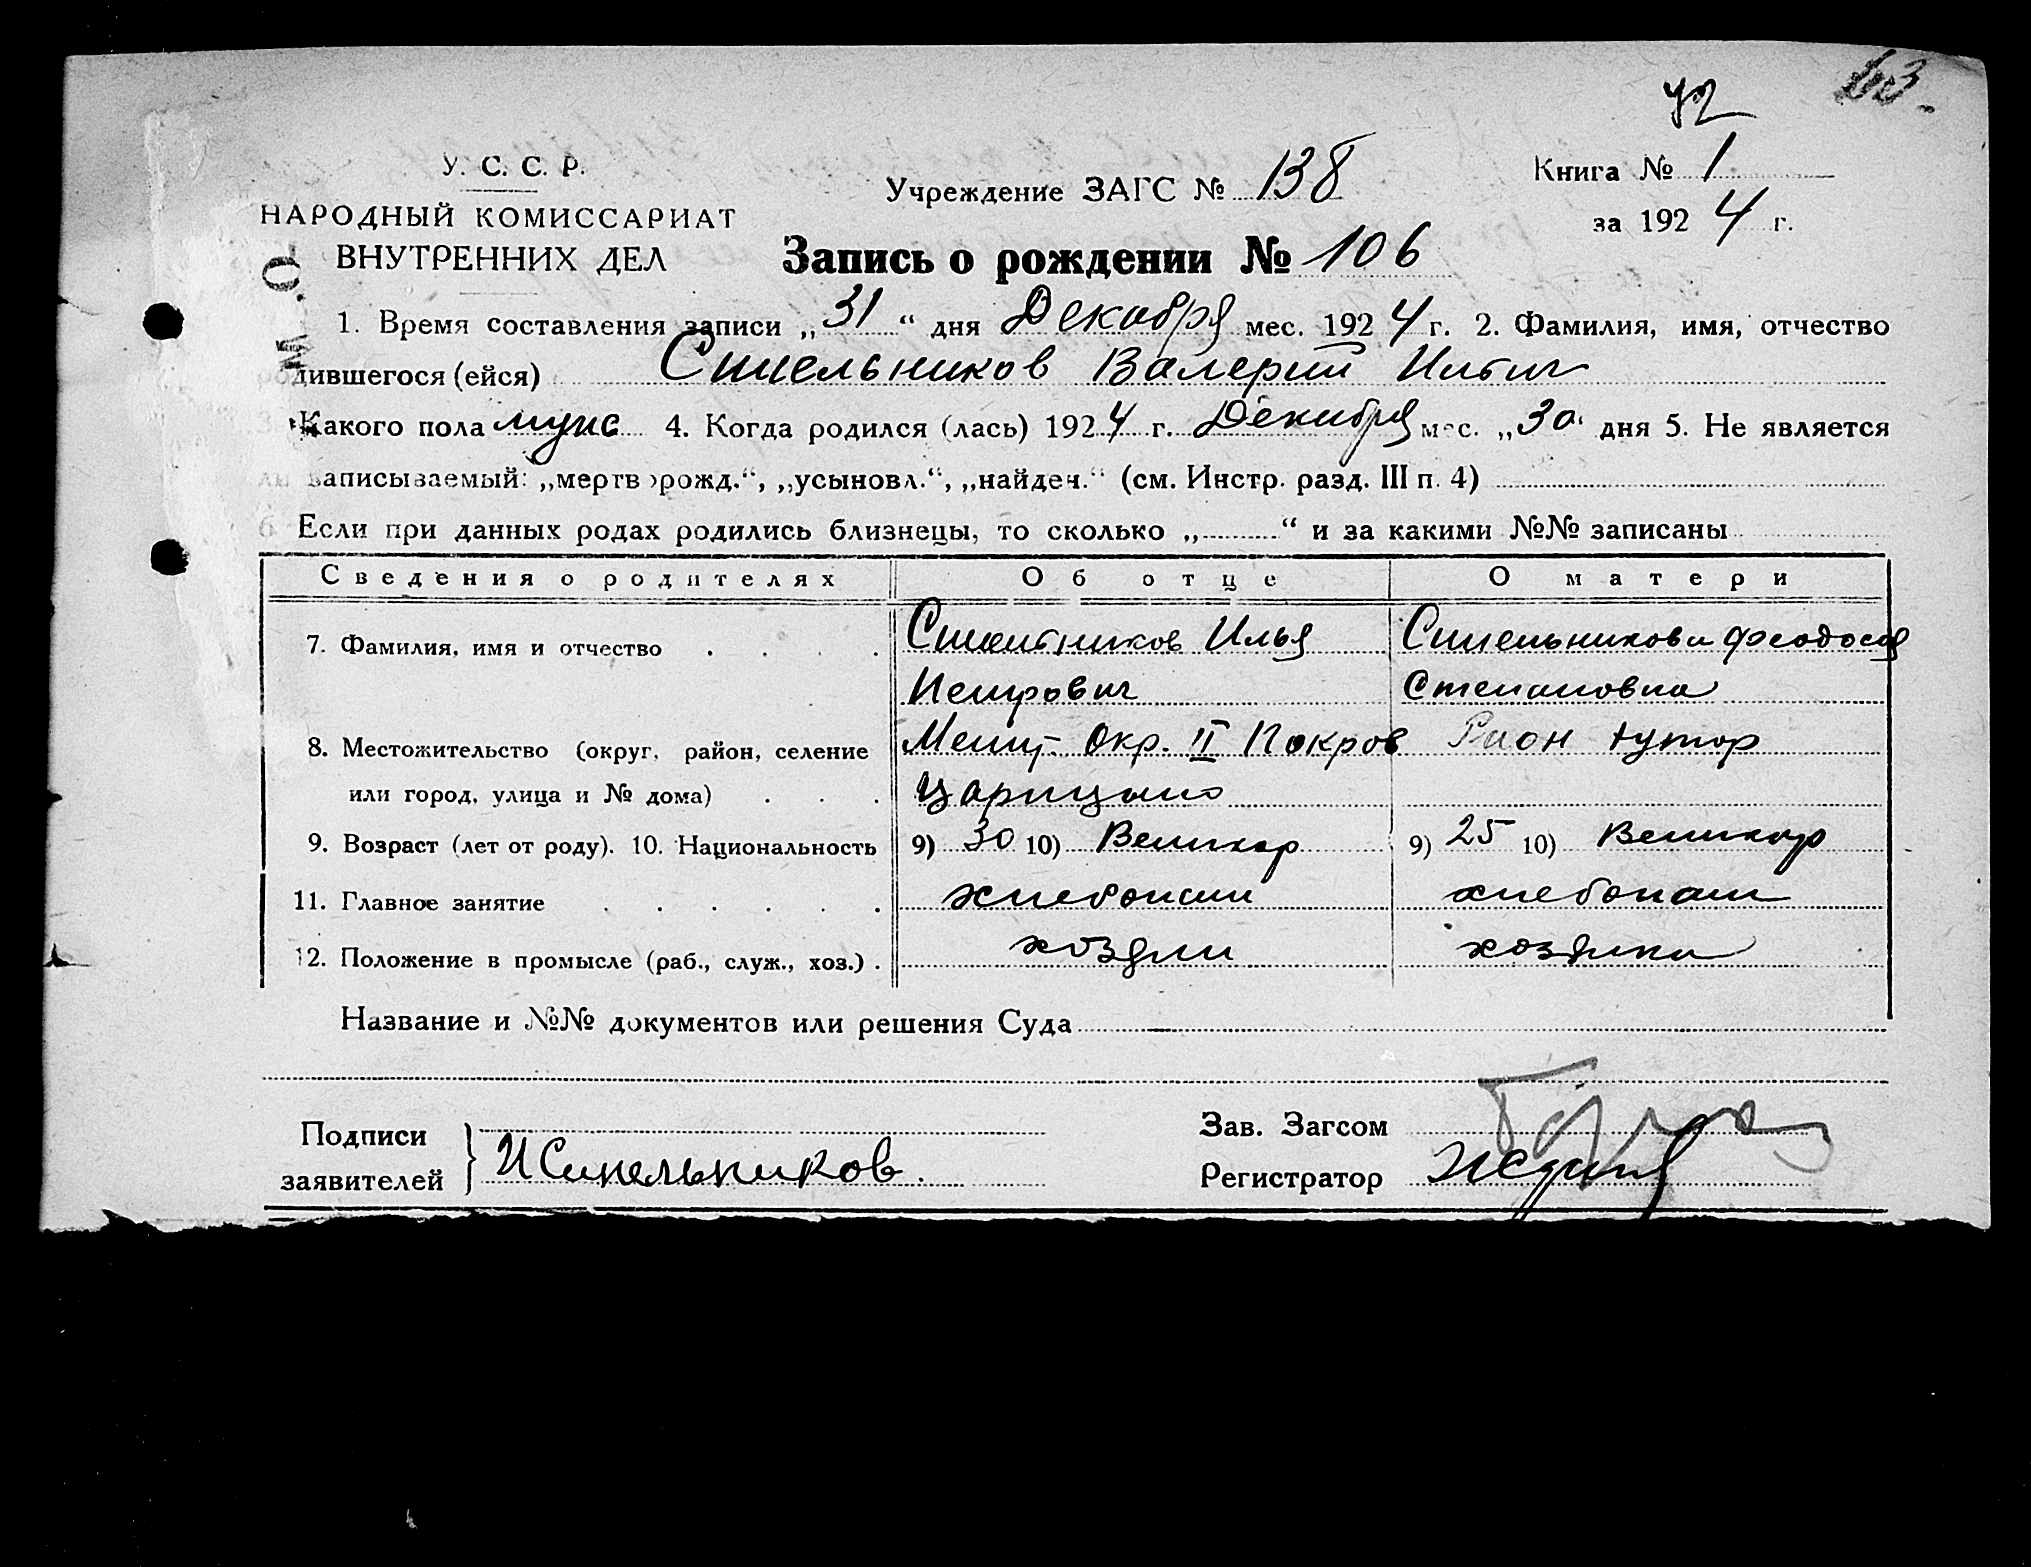 42
У. С. С. Р.
Учреждение ЗАГС № 138
Книга № 1
НАРОДНЫЙ КОМИССАРИАТ
за 1924 г.
ВНУТРЕННИХ ДЕЛ
Запись о рождении № 106
1. Время составления записи „31“ дня Декабря мес. 1924 г. 2. Фамилия, имя, отчество
родившегося (ейся) Синельников Валерий Ильич
Какого пола муж 4. Когда родился (лась) 1924 г. Декабря мес. „30“ дня 5. Не является
ли записываемый: „мертворожд.“, „усыновл.“, „найден.“ (см. Инстр. разд. III п. 4)
6 Если при данных родах родились близнецы, то сколько „ “ и за какими №№ записаны
Сведения о родителях Об отце О матери
7. Фамилия, имя и отчество Синельников Илья Петрович Синельникова Феодосия Степановна
8. Местожительство (округ, район, селение Мелит. Окр. II Покров Район хутор
или город, улица и № дома) Царицыно
9. Возраст (лет от роду). 10. Национальность 9) 30 10) Великор 9) 25 10) Великор
11. Главное занятие хлебопаш хлебопаш
12. Положение в промысле (раб., служ., хоз.) хозяин хозяйка
Название и №№ документов или решения Суда —
Подписи
заявителей И Синельников.
Зав. Загсом
Регистратор